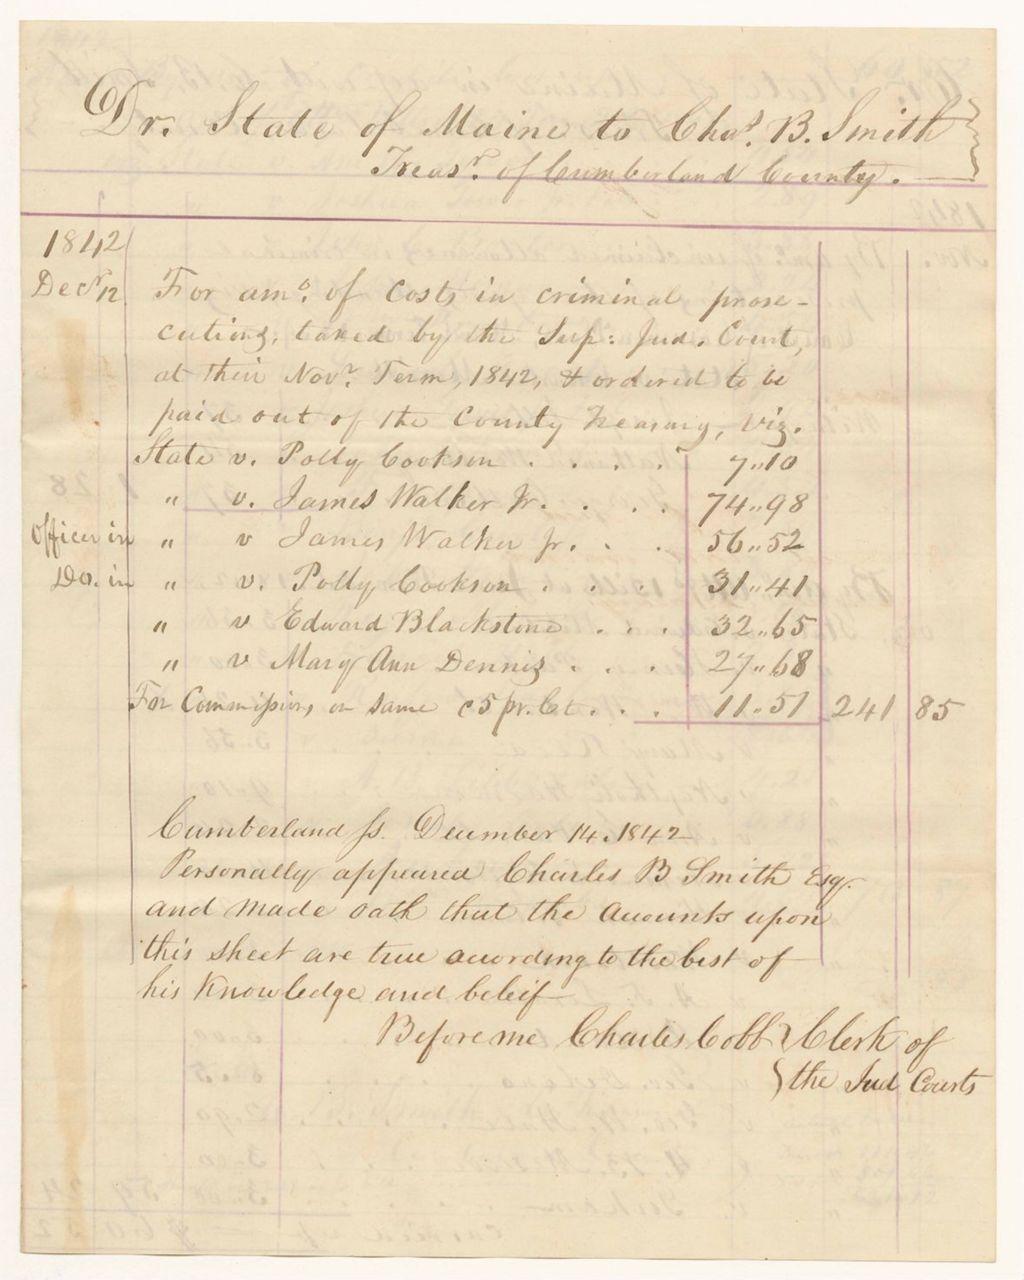 Dr. State of Maine to Chas. B. Smith
Treasr. of Cumberland County.
1842
Decr 12 For amo. of costs in criminal prose-
cutions, taxed by the Sup: Jud. Court,
at their Novr. Term, 1842, & ordered to be
paid out of the County Treasury, Viz.
State v. Polly Cookson . . . . 7,,10
" v. James Walker Jr. . . . 74,,98
Officer in " v James Walker Jr. . . . 56,,52
Do. in " v. Polly Cookson . . . 31,,41
" v Edward Blackstone . . . 32,,65
" v Mary Ann Dennis . . . 27,,68
For Commissions on same c 5 pr. Ct. . . . 11,,51 241 85
Cumberland ss. December 14. 1842
Personally appeared Charles B Smith Esq.
and made oath that the accounts upon
this sheet are true acording to the best of
his Knowledge and beleif
Before me Charles Cobb } Clerk of
{ the Jud Courts